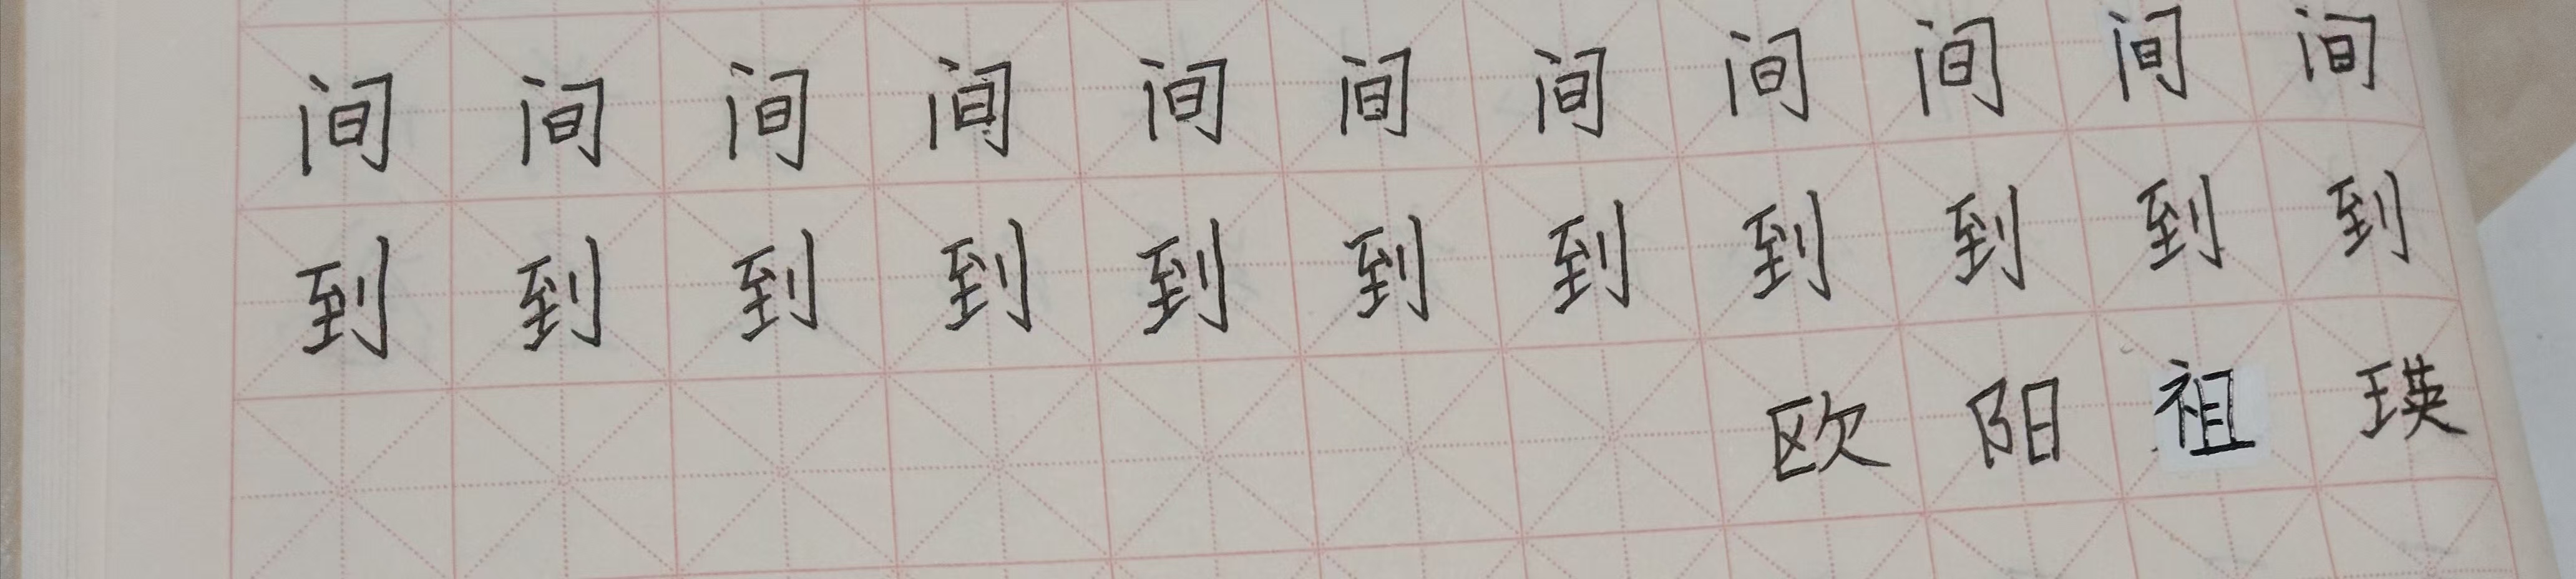 间间间间间间间间间间间
到到到到到到到到到到到
欧阳祖瑛